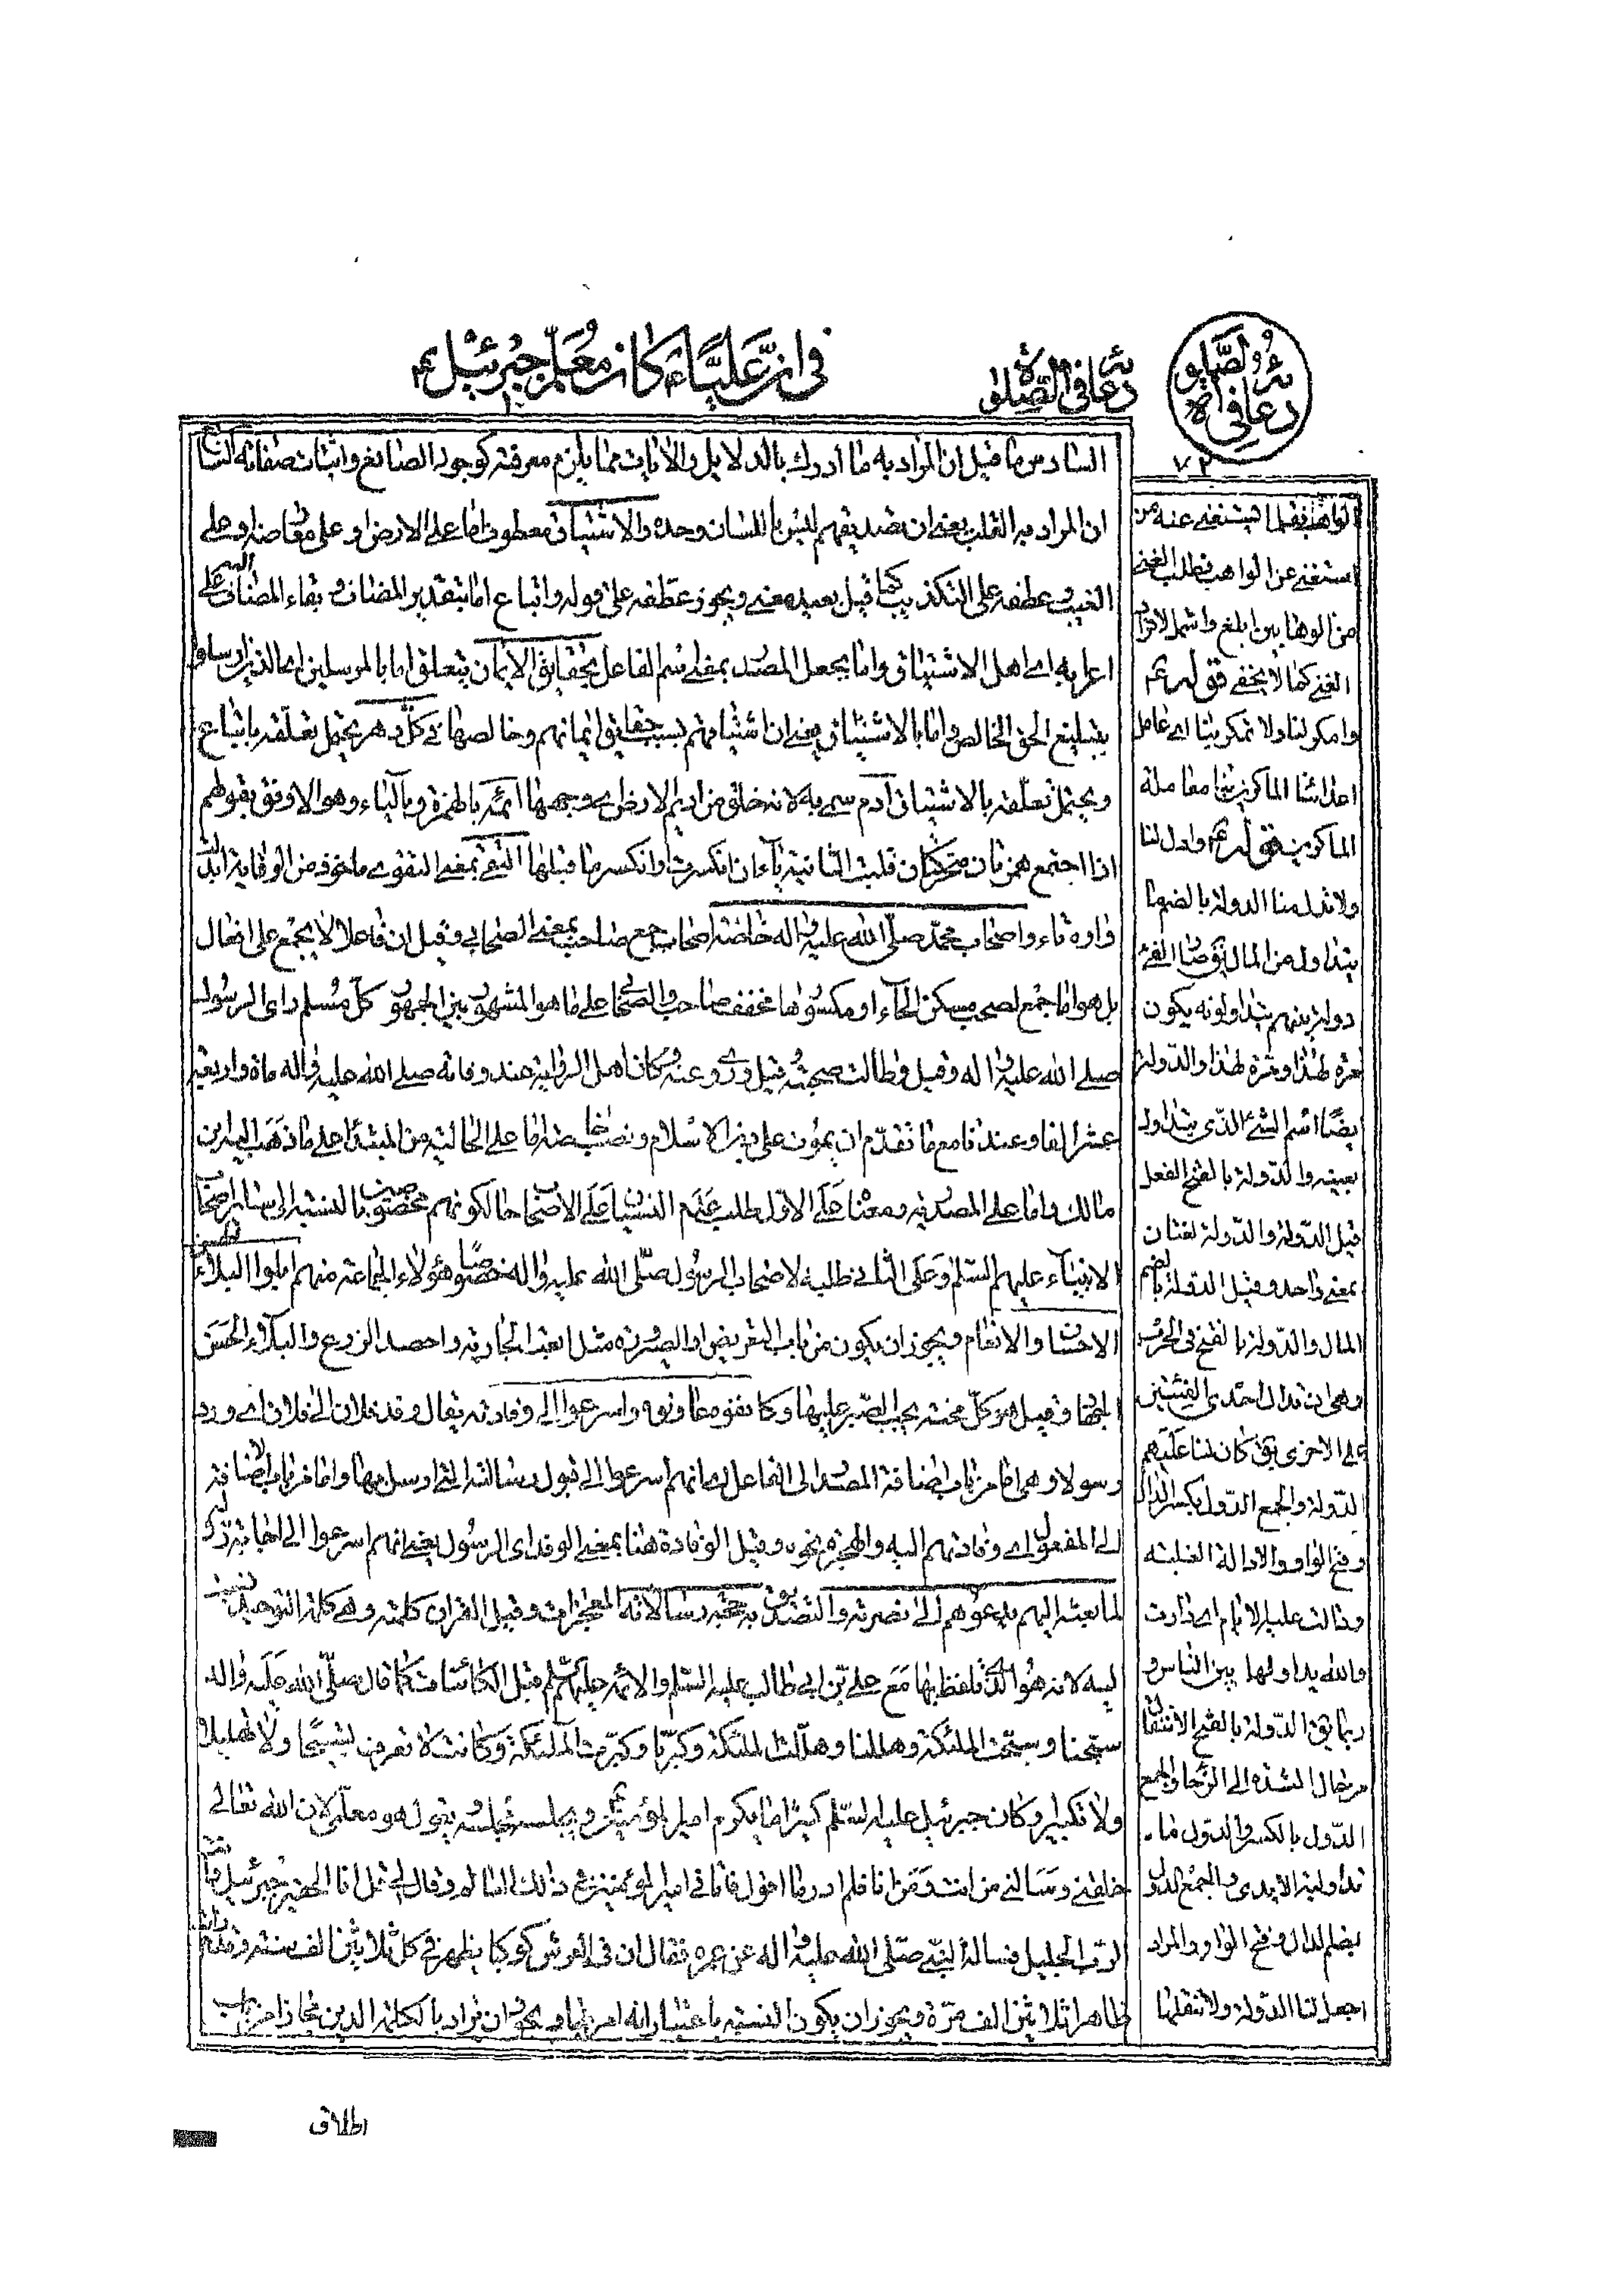 في ان عليا ع كان معلم جبرئيل ع
دعائه في الصلوة
دعائه في الصلوة
٧٢
السادس ما قيل ان المراد به ما أدرك بالدلايل والايات مما يلزم معرفته كوجود الصانع واثبات صفاته السابع
ان المراد به القلب يعني ان تصديقهم ليس باللسان وحده والاشتياق معطوف اما على الارض او على معارضة او على
الغيب وعطفه على التكذيب كما قيل بعيد معنى ويجوز عطفه على قوله واتباع اما بتقدير المضاف وبقاء المضاف اليه على
اعرابه اي اهل الاشتياق واما بجعل المصدر بمعنى اسم الفاعل بحقايق الايمان يتعلق اما بالمرسلين اي الذين ارسلوا
بتبليغ الحق الخالص واما بالاشتياق يعني ان اشتياقهم بسبب حقايق ايمانهم وخالصها في كل دهر يحتمل تعلقه باتباع
ويحتمل تعلقه بالاشتياق آدم سمي به لانه خلق من اديم الارض اي وجهها ائمة بالهمزة وبالياء وهو الاوفق بقولهم
اذا اجتمع همزتان متحركتان قلبت الثانية ياء ان انكسرت وانكسر ما قبلها التقى بمعنى التقوى ماخوذ من الوقاية ابدلت
واوه تاء واصحاب محمد صلى الله عليه واله خاصة اصحاب جمع صاحب بمعنى الصحابي وقيل ان فاعلا لا يجمع على افعال
بل هو اما جمع لصحب مسكن الحاء او مكسورها مخفف صاحب والصحابي على ما هو المشهور بين الجمهور كل مسلم راى الرسول
صلى الله عليه واله وقيل وطالت صحبته قيل وروى عنه وكان اهل الرواية عند وفاته صلى الله عليه واله ماة واربعة
عشر الفا وعندنا مع ما تقدم ان يموت على دين الاسلام ونصب خاصة اما على الحالية من المبتدا على ما ذهب اليه ابن
مالك واما على المصدرية ومعناه على الاول طلب عدم النسيان على الاصحاب حالكونهم مخصوصين بالنسبة الى ساير اصحاب
الانبياء عليهم السلم وعلى الثاني طلبه لاصحاب الرسول صلى الله عليه واله خصوصا هؤلاء الجماعة منهم ابلوا البلاء
الاحسان والانعام ويجوز ان يكون من باب التعريض او الصيرورة مثل ابعت الجارية واحصد الزرع والبلاء الحسن
الجهاد وقيل هو كل محنة يجب الصبر عليها وكانفوه عاونوه واسرعوا الى وفادته يقال وفد فلان الى فلان اي ورد
رسولا وهي اما من باب اضافة المصدر الى الفاعل اي انهم اسرعوا الى قبول رسالته التي ارسل بها واما من باب الاضافة
الى المفعول اي وفادتهم اليه والهجرة نحوه وقيل الوفادة هنا بمعنى الوفد اي الرسول يعني انهم اسرعوا الى اجابة رسوله
لما بعثه اليهم يدعوهم الى نصرته والتصديق به حجة رسالاته المعجزات وقيل القران كلمته وهي كلمة التوحيد نسبت
اليه لانه هو الذي تلفظ بها مع علي بن ابي طالب عليه السلم والائمة عليهم السلم قبل الكائنات كما قال صلى الله عليه واله
سبحنا وسبحت الملئكة وهللنا وهللت الملئكة وكبرنا وكبرت الملئكة وكانت لا تعرف تسبيحا ولا تهليلا
ولا تكبيرا وكان جبرئيل عليه السلم كثيرا ما يكرم امير المؤمنين ع ويجلسه مجلسه ويقول هو معلمي لان الله تعالى
خلقني وسالني من انت ومن انا فلم ادر ما اقول فاتاني امير المؤمنين ع ذلك العالم وقال لي قل انا الحقير جبرئيل وانت
الرب الجليل فساله النبي صلى الله عليه واله عن عمره فقال ان في العرش كوكبا يظهر في كل ثلاثين الف سنة مرة وقد رايته
ظاهرا ثلاثين الف مرة ويجوز ان يكون النسبة باعتبار انه امر بها ويجوز ان يراد بالكلمة الدين مجازا من باب
الواهب بقدر ما يستغني عنه من
استغنى عن الواهب فطلب الغنى
من الوهاب ابلغ واشمل لافراد
الغنى كما لا يخفى قوله ع
وامكر لنا ولا تمكر بنا اي عامل
اعدائنا الماكرين بنا معاملة
الماكرين قوله ع وادل لنا
ولا تدل منا الدولة بالضم ما
يتداول من المال يق صار الفئ
دولة بينهم يتداولونه يكون
مرة لهذا ومرة لهذا والدولة
ايضا اسم الشئ الذي يتداول
بعينه والدولة بالفتح الفعل
قيل الدولة والدولة لغتان
بمعنى واحد وقيل الدولة بالضم
المال والدولة بالفتح في الحرب
وهي ان تدال احدى الفئتين
على الاخرى يق كان لنا عليهم
الدولة والجمع الدول بكسر الدال
وفتح الواو والادالة الغلبة
ودالت عليه الايام اي دارت
والله يداولها بين الناس و
ربما يق الدولة بالفتح الانتقال
من حال الشدة الى الرخاء والجمع
الدول بالكسر والدول ما
تداولته الايدي والجمع الدول
بضم الدال وفتح الواو والمراد
اجعل لنا الدولة ولا تنقلها
اطلاق